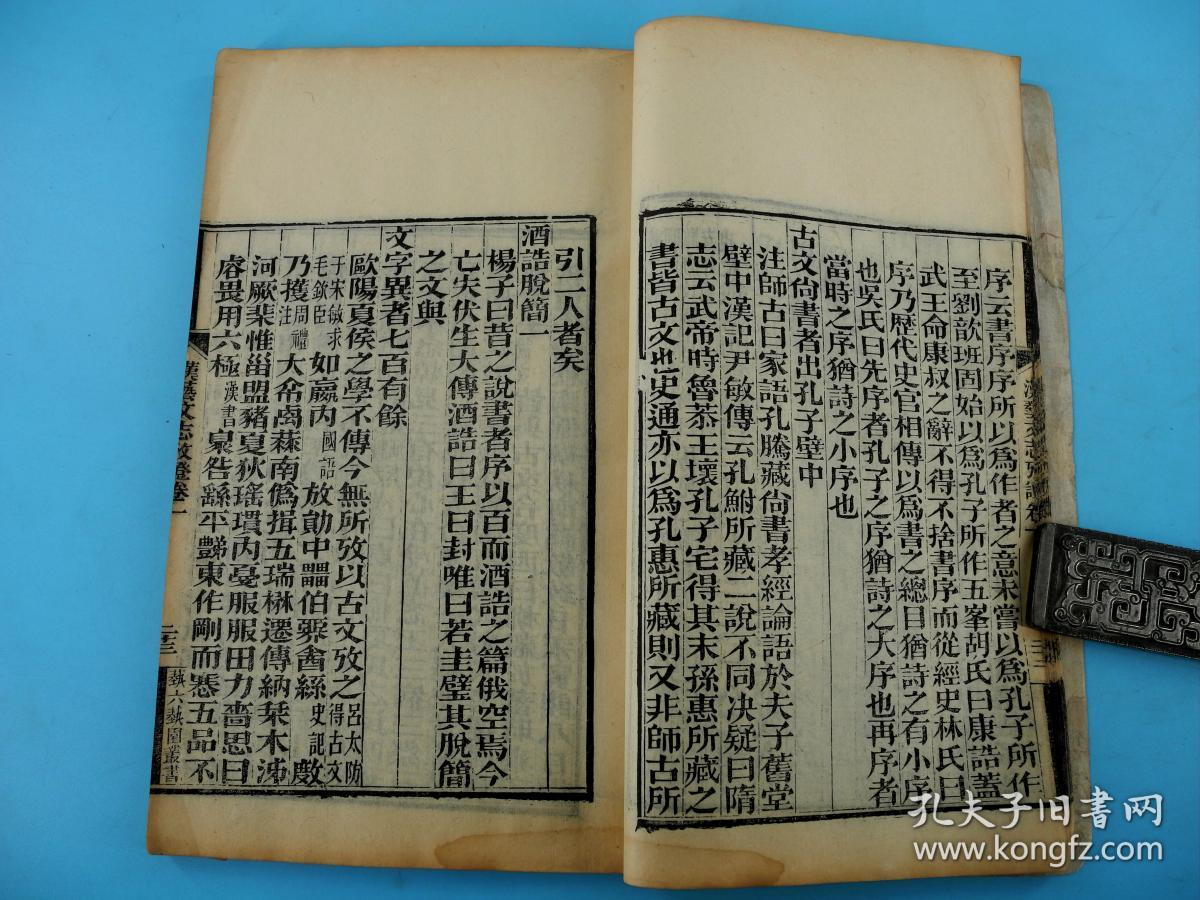 序云書序序所以為作者之意未嘗以為孔子所作
至劉歆班固始以為孔子所作五峯胡氏曰康誥蓋
武王命康叔之辭不得不捨書序而從經史林氏曰
序乃歷代史官相傳以為書之總目猶詩之有小序
也吳氏曰先序者孔子之序猶詩之大序也再序者
當時之序猶詩之小序也
古文尙書者出孔子壁中
注師古曰家語孔騰藏尙書孝經論語於夫子舊堂
壁中漢記尹敏傳云孔鮒所藏二說不同決疑曰隋
志云武帝時魯恭王壞孔子宅得其末孫惠所藏之
書皆古文也史通亦以為孔惠所藏則又非師古所
引二人者矣
酒誥脫簡一
楊子曰昔之說書者序以百而酒誥之篇俄空焉今
亡夫伏生大傳酒誥曰王曰封唯曰若圭璧其脫簡
之文與
文字異者七百有餘
歐陽夏侯之學不傳今無所攷以古文攷之呂大防得古文
于宋敏求毛欽臣如嬴內國語放勛中𤳳伯槼畬繇史記敷
乃擭周禮注大命禼蘇南僞揖五瑞楙遷傳納栞木沲
河厥棐惟甾盟豬夏狄瑤瑻內憂服服田力嗇思曰
睿畏用六極漢書泉咎繇平豒東作剛而惥五品不
漢藝文志攷證卷一
二三
藝六藝圃叢書
孔夫子旧書网
www.kongfz.com